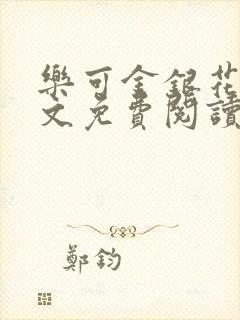 樂可金銀花
文免費閱讀
鄭鈞